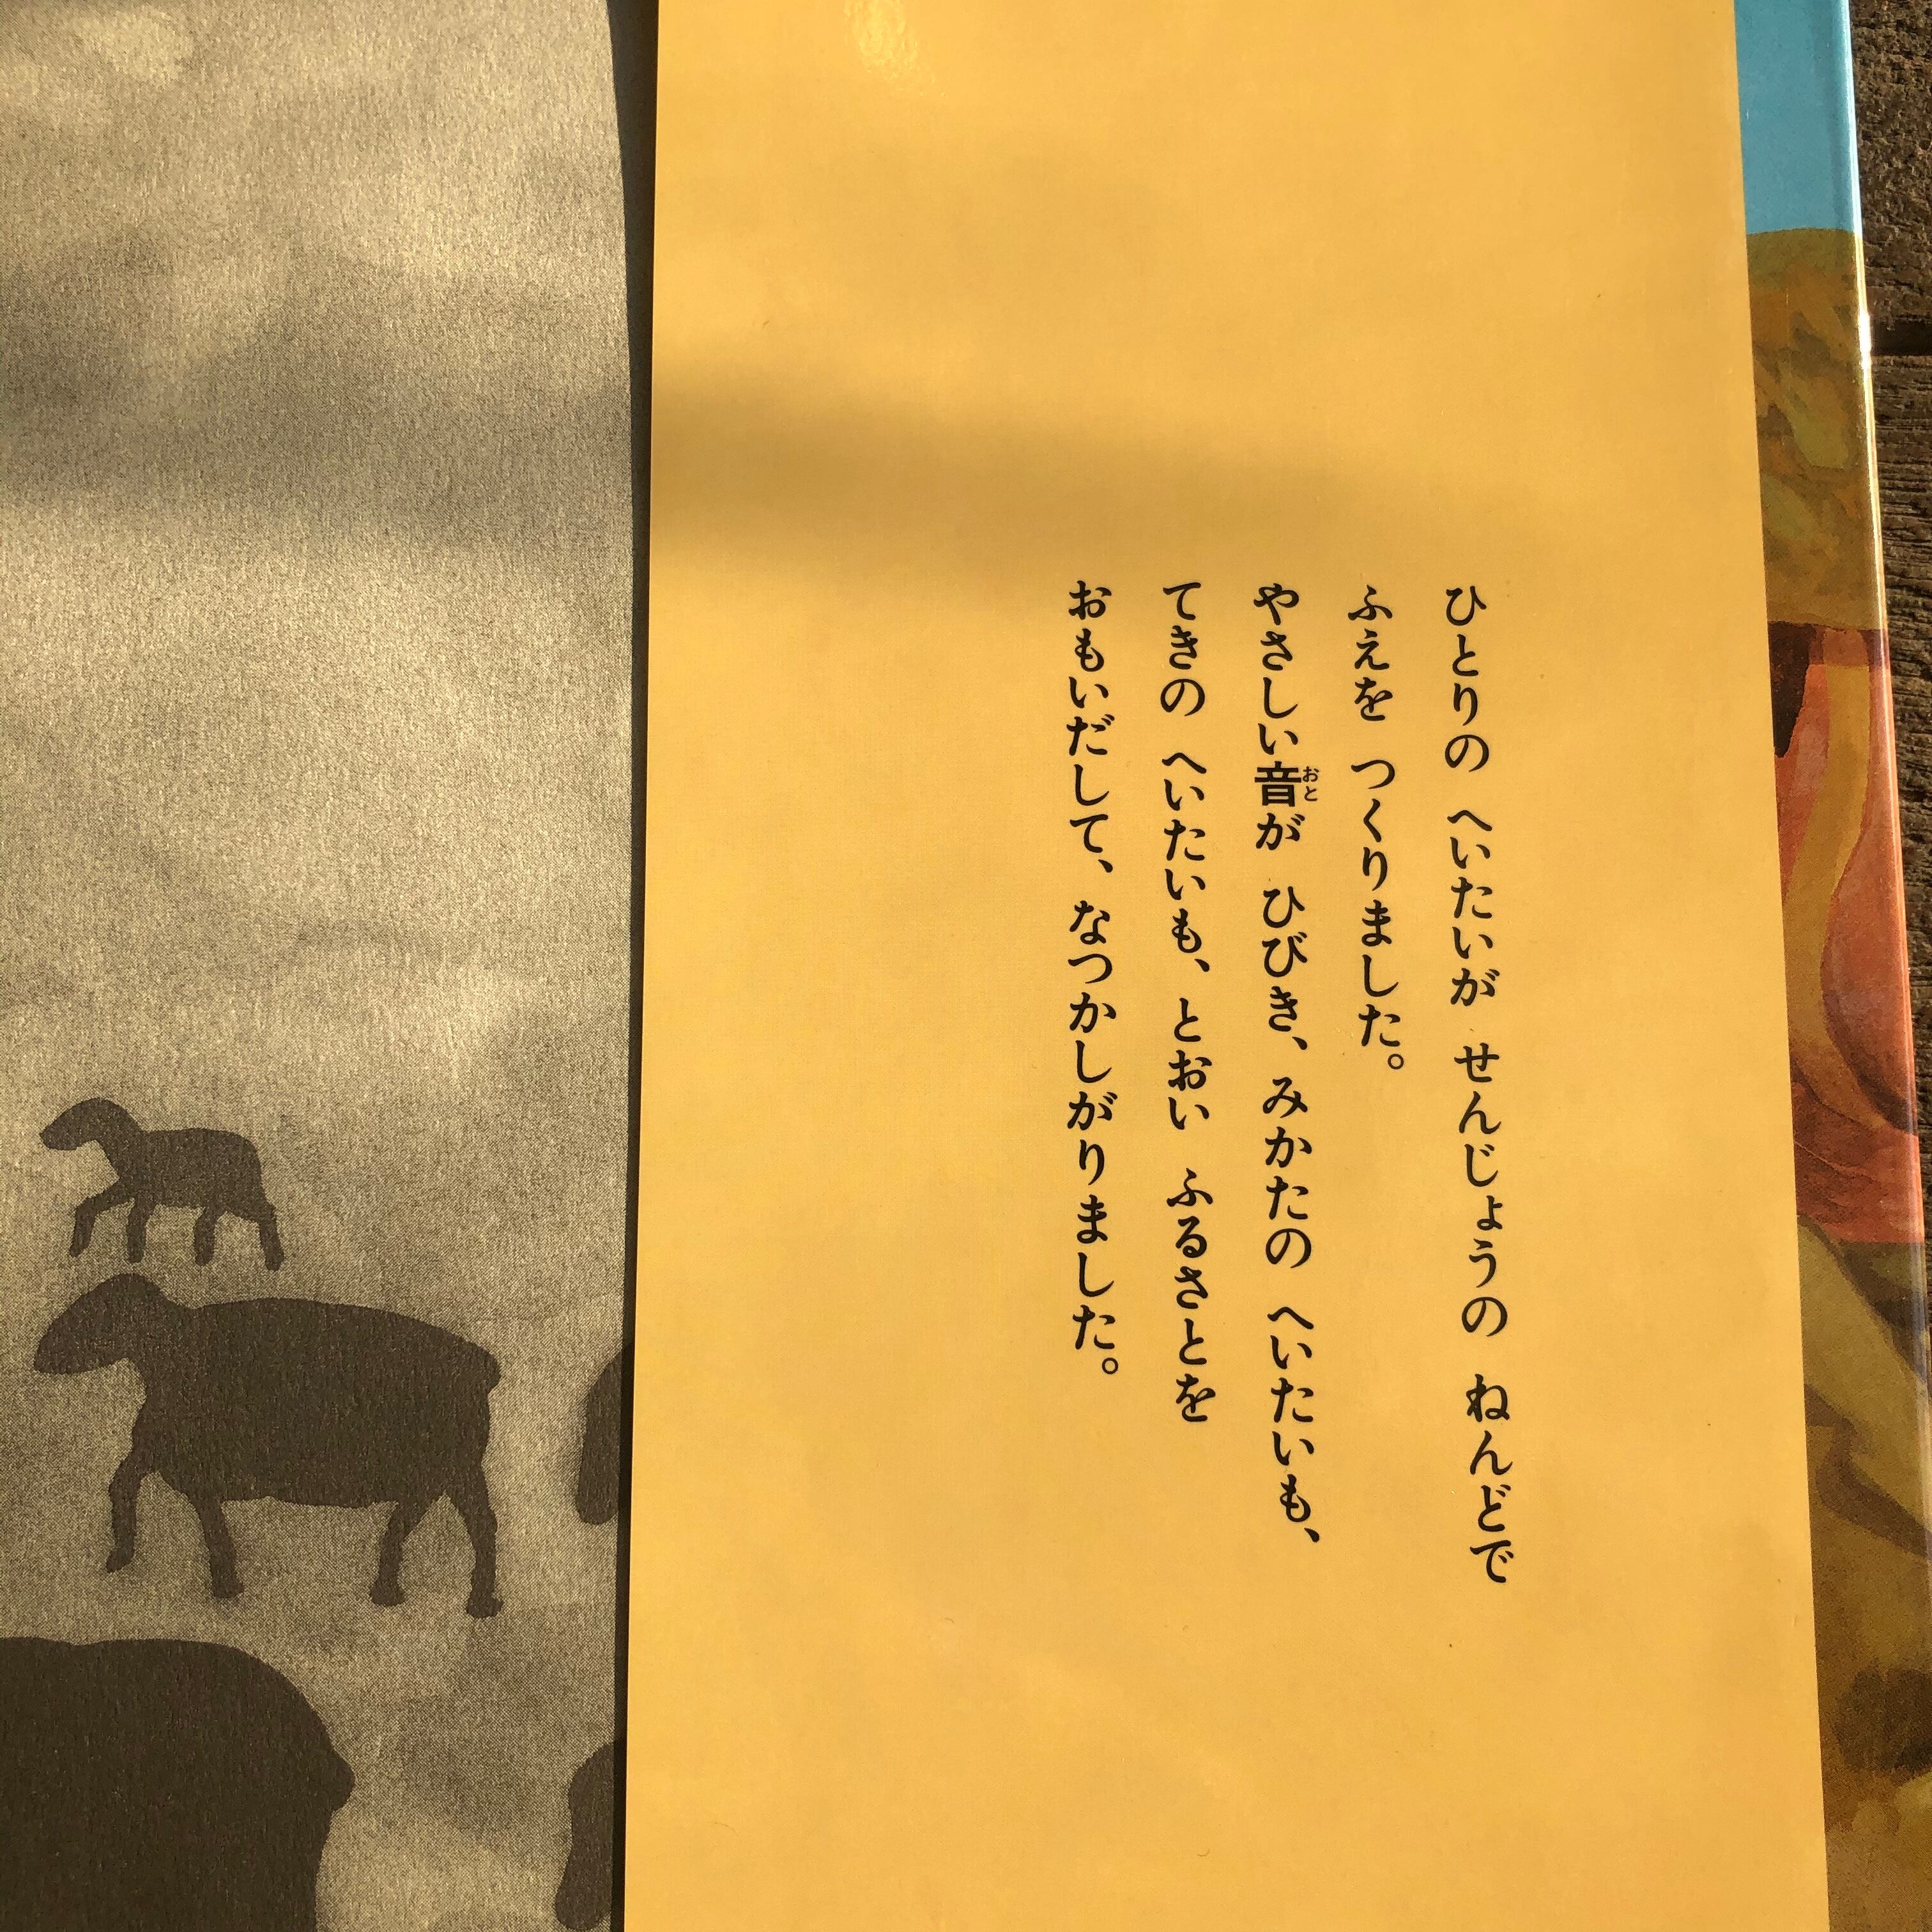 ひとりの へいたいが せんじょうの ねんどで
ふえを つくりました。
やさしい音が ひびき、みかたの へいたいも、
おと
てきの へいたいも、とおい ふるさとを
おもいだして、なつかしがりました。